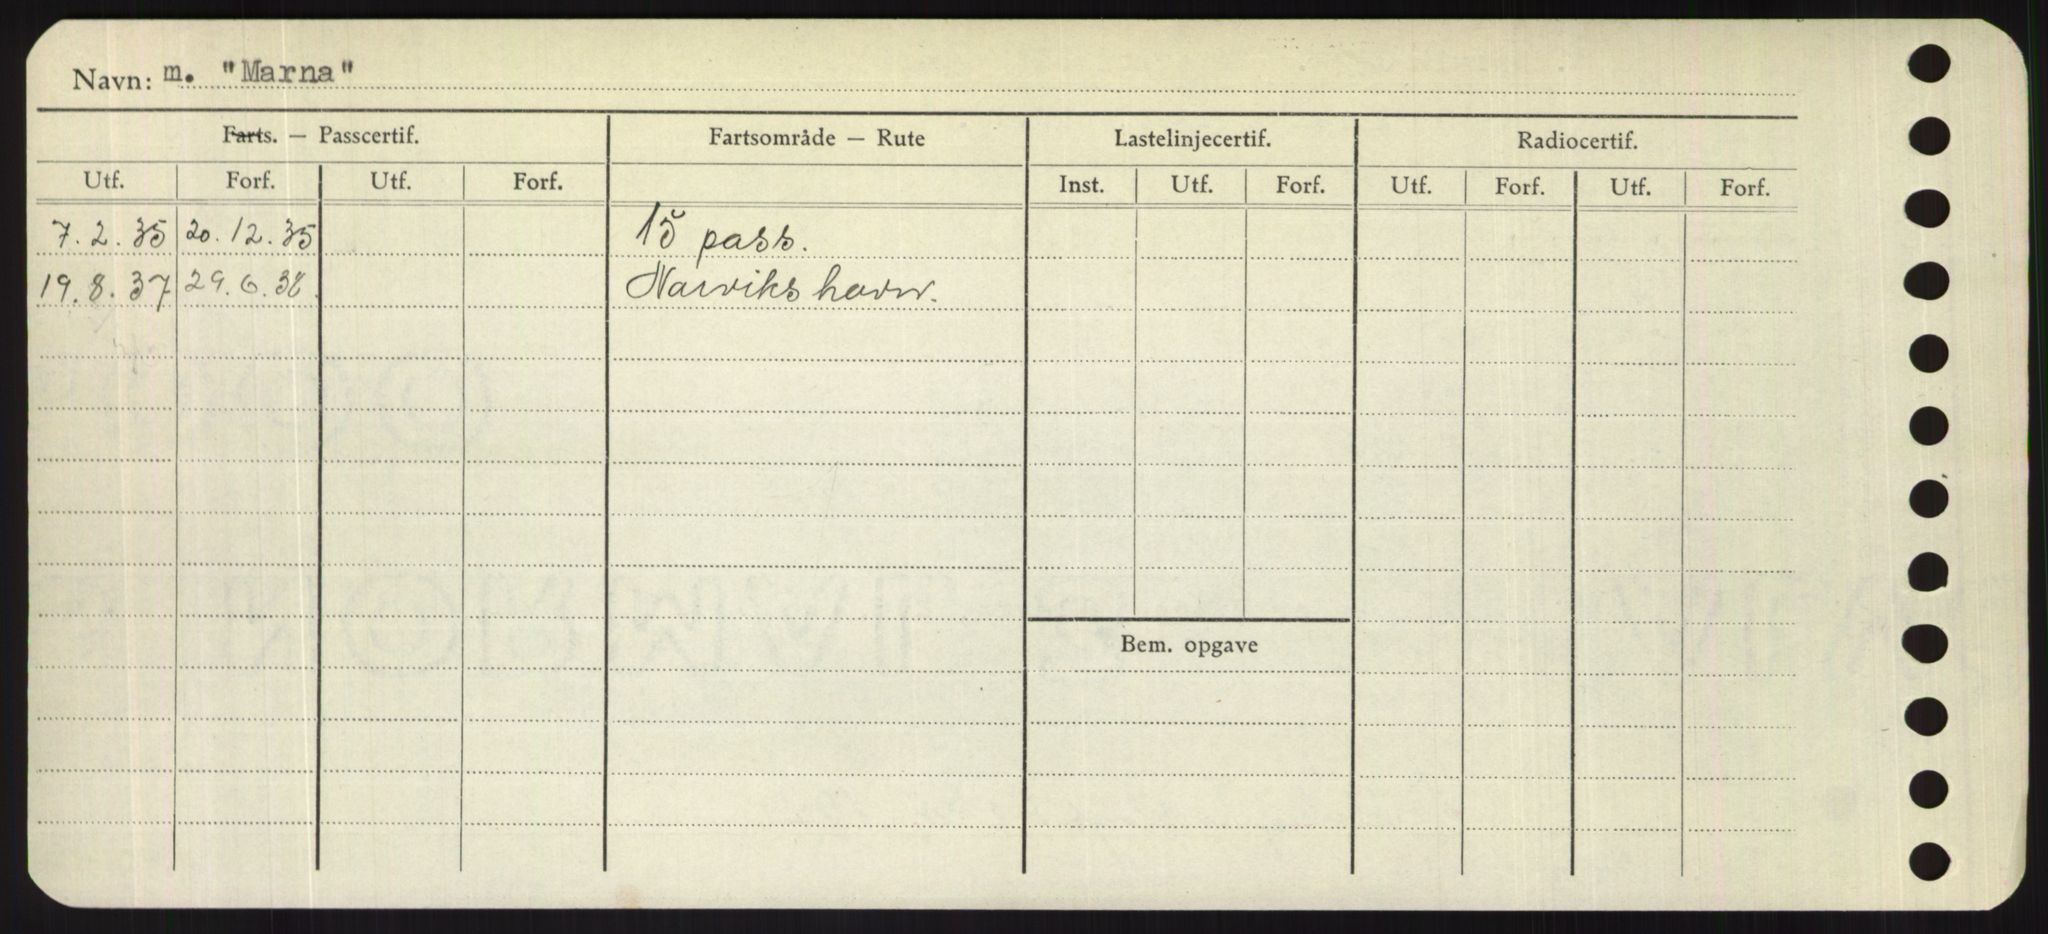 Navn: m. "Marna"
Farts. — Passcertif. Fartsområde — Rute Lastelinjecertif. Radiocertif.
Utf. Forf. Utf. Forf. Inst. Utf. Forf. Utf. Forf. Utf. Forf.
7.2.35 20.12.35 15 pass.
19.8.37 29.6.38. Narviks havn.
Bem. opgave